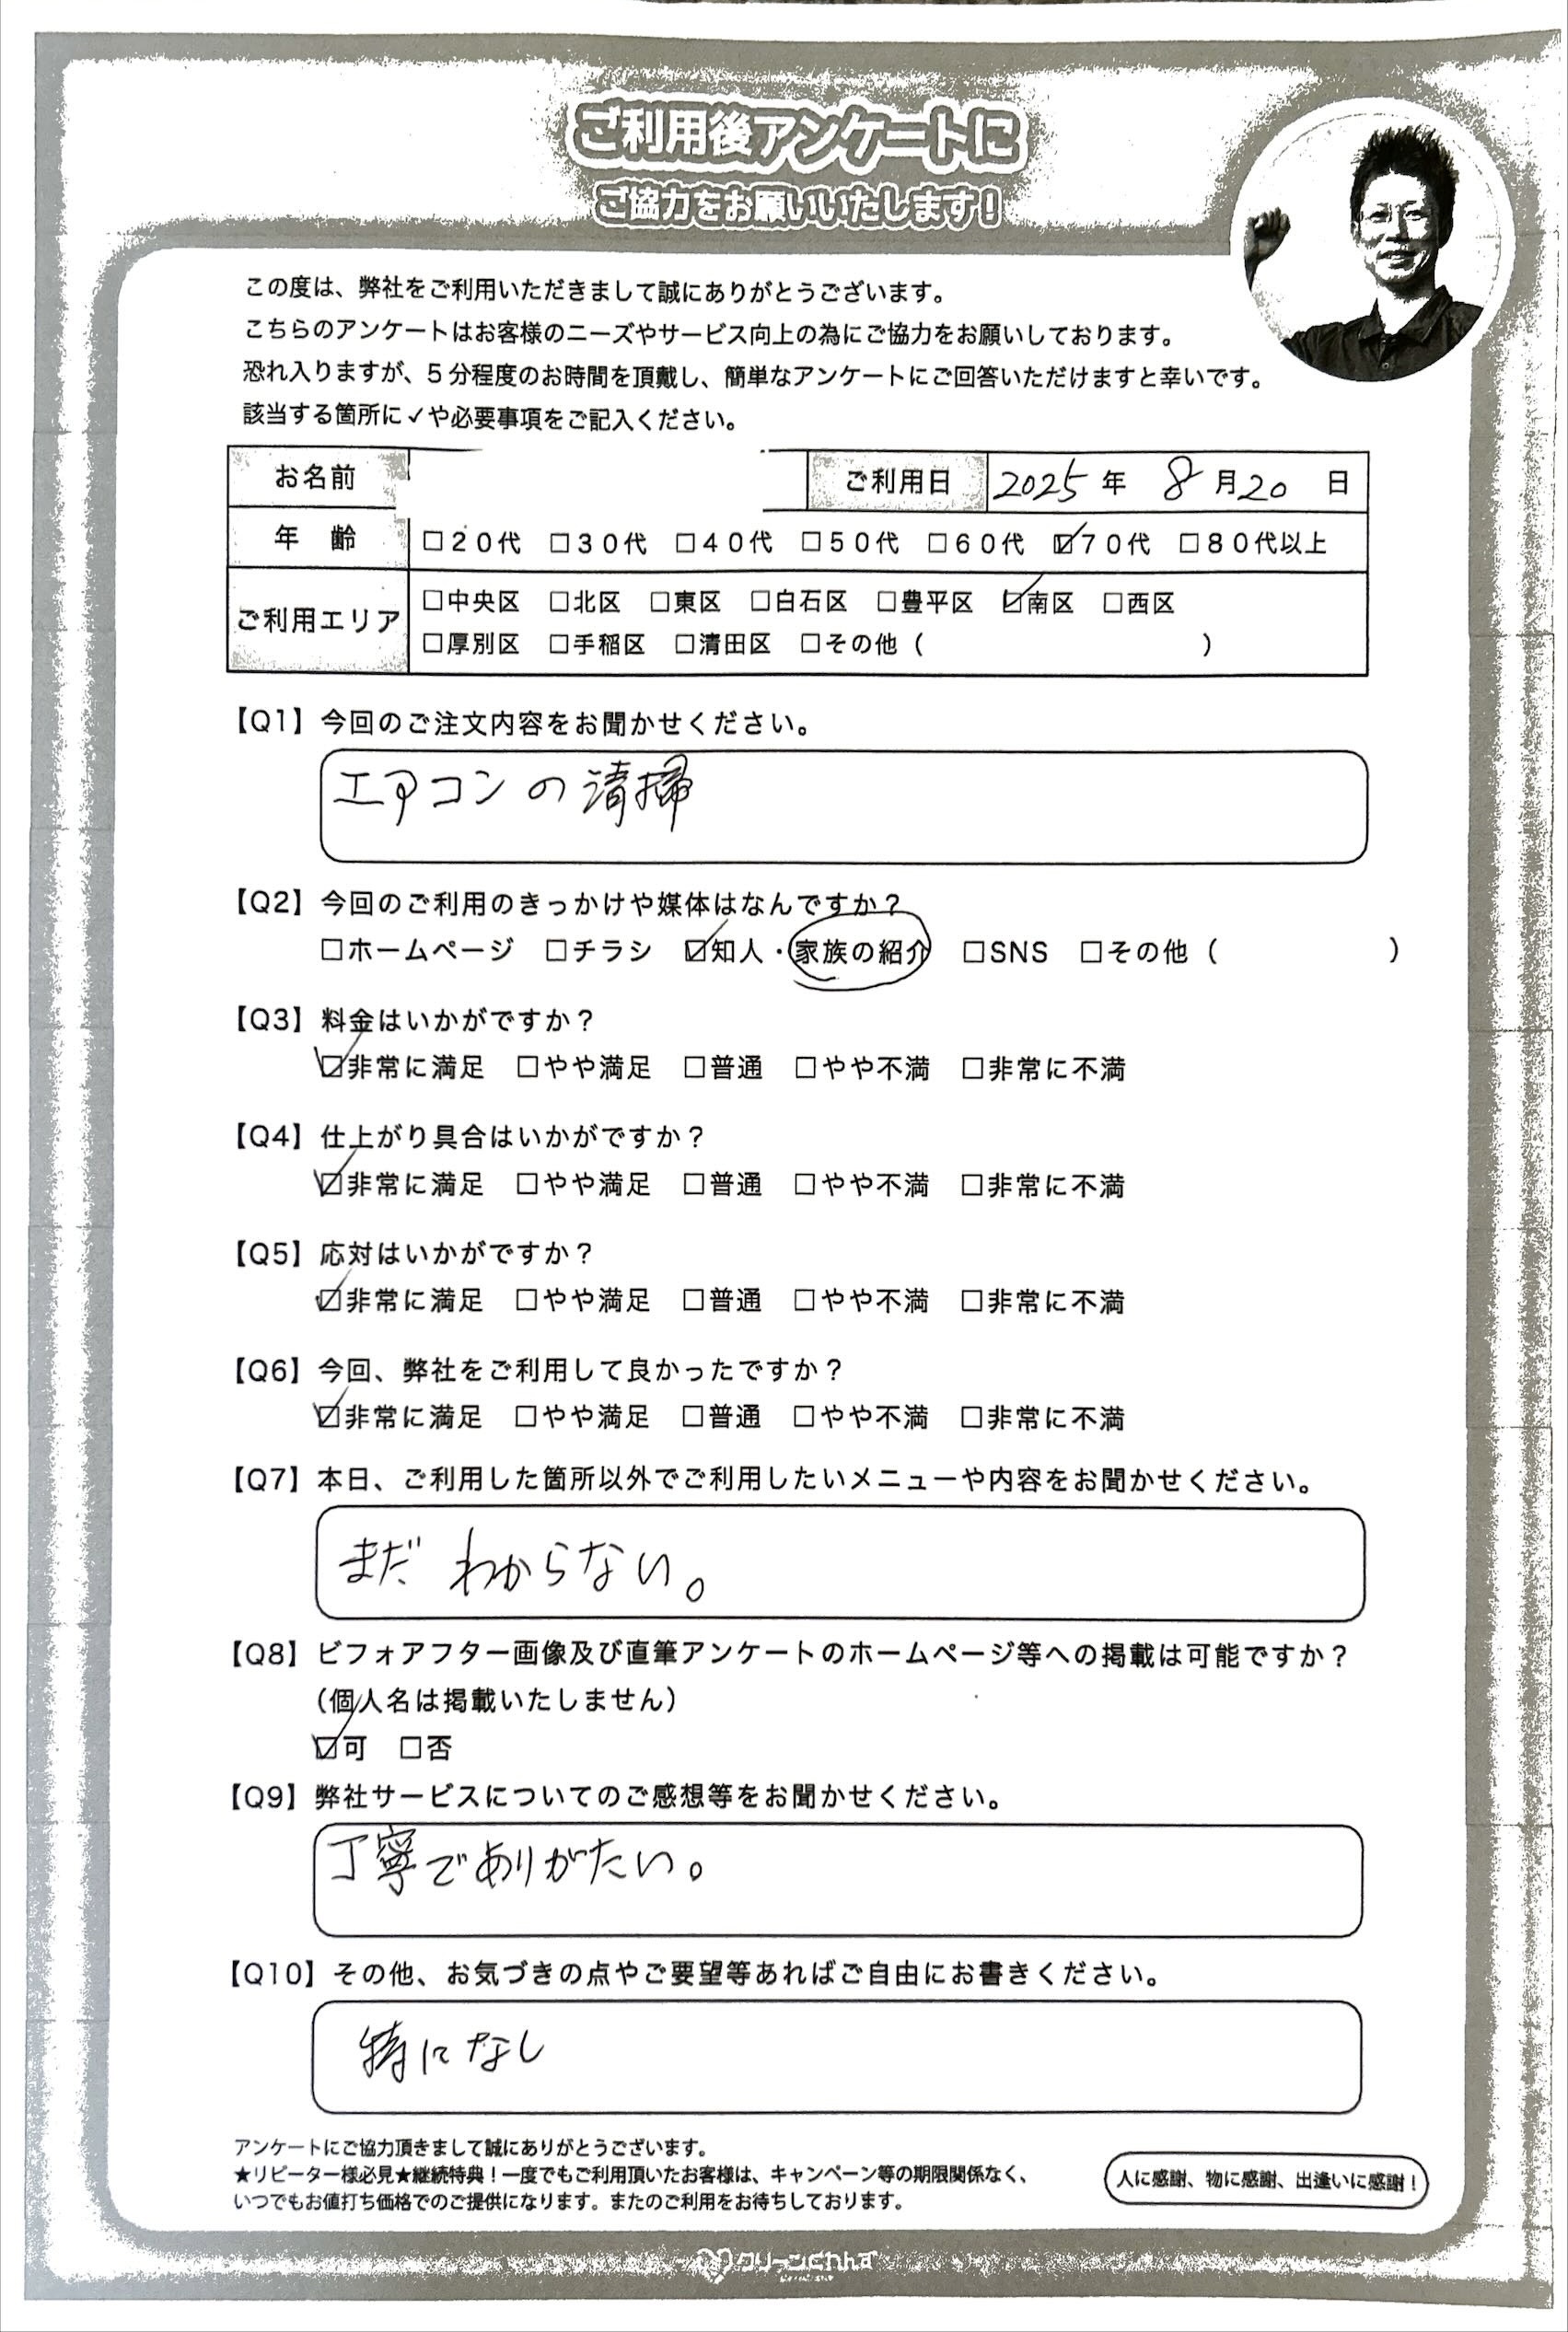 ご利用後アンケートに
ご協力をお願いいたします！
この度は、弊社をご利用いただきまして誠にありがとうございます。
こちらのアンケートはお客様のニーズやサービス向上の為にご協力をお願いしております。
恐れ入りますが、5分程度のお時間を頂戴し、簡単なアンケートにご回答いただけますと幸いです。
該当する箇所に✓や必要事項をご記入ください。
お名前 ご利用日 2025年 8月20日
年齢 □20代 □30代 □40代 □50代 □60代 ☑70代 □80代以上
ご利用エリア □中央区 □北区 □東区 □白石区 □豊平区 ☑南区 □西区
□厚別区 □手稲区 □清田区 □その他（ ）
【Q1】今回のご注文内容をお聞かせください。
エアコンの清掃
【Q2】今回のご利用のきっかけや媒体はなんですか？
□ホームページ □チラシ ☑知人・家族の紹介 □SNS □その他（ ）
【Q3】料金はいかがですか？
☑非常に満足 □やや満足 □普通 □やや不満 □非常に不満
【Q4】仕上がり具合はいかがですか？
☑非常に満足 □やや満足 □普通 □やや不満 □非常に不満
【Q5】応対はいかがですか？
☑非常に満足 □やや満足 □普通 □やや不満 □非常に不満
【Q6】今回、弊社をご利用して良かったですか？
☑非常に満足 □やや満足 □普通 □やや不満 □非常に不満
【Q7】本日、ご利用した箇所以外でご利用したいメニューや内容をお聞かせください。
まだ わからない。
【Q8】ビフォアフター画像及び直筆アンケートのホームページ等への掲載は可能ですか？
（個人名は掲載いたしません）
☑可 □否
【Q9】弊社サービスについてのご感想等をお聞かせください。
丁寧でありがたい。
【Q10】その他、お気づきの点やご要望等あればご自由にお書きください。
特になし
アンケートにご協力頂きまして誠にありがとうございます。
★リピーター様必見★継続特典！一度でもご利用頂いたお客様は、キャンペーン等の期限関係なく、
いつでもお値打ち価格でのご提供になります。またのご利用をお待ちしております。
人に感謝、物に感謝、出逢いに感謝！